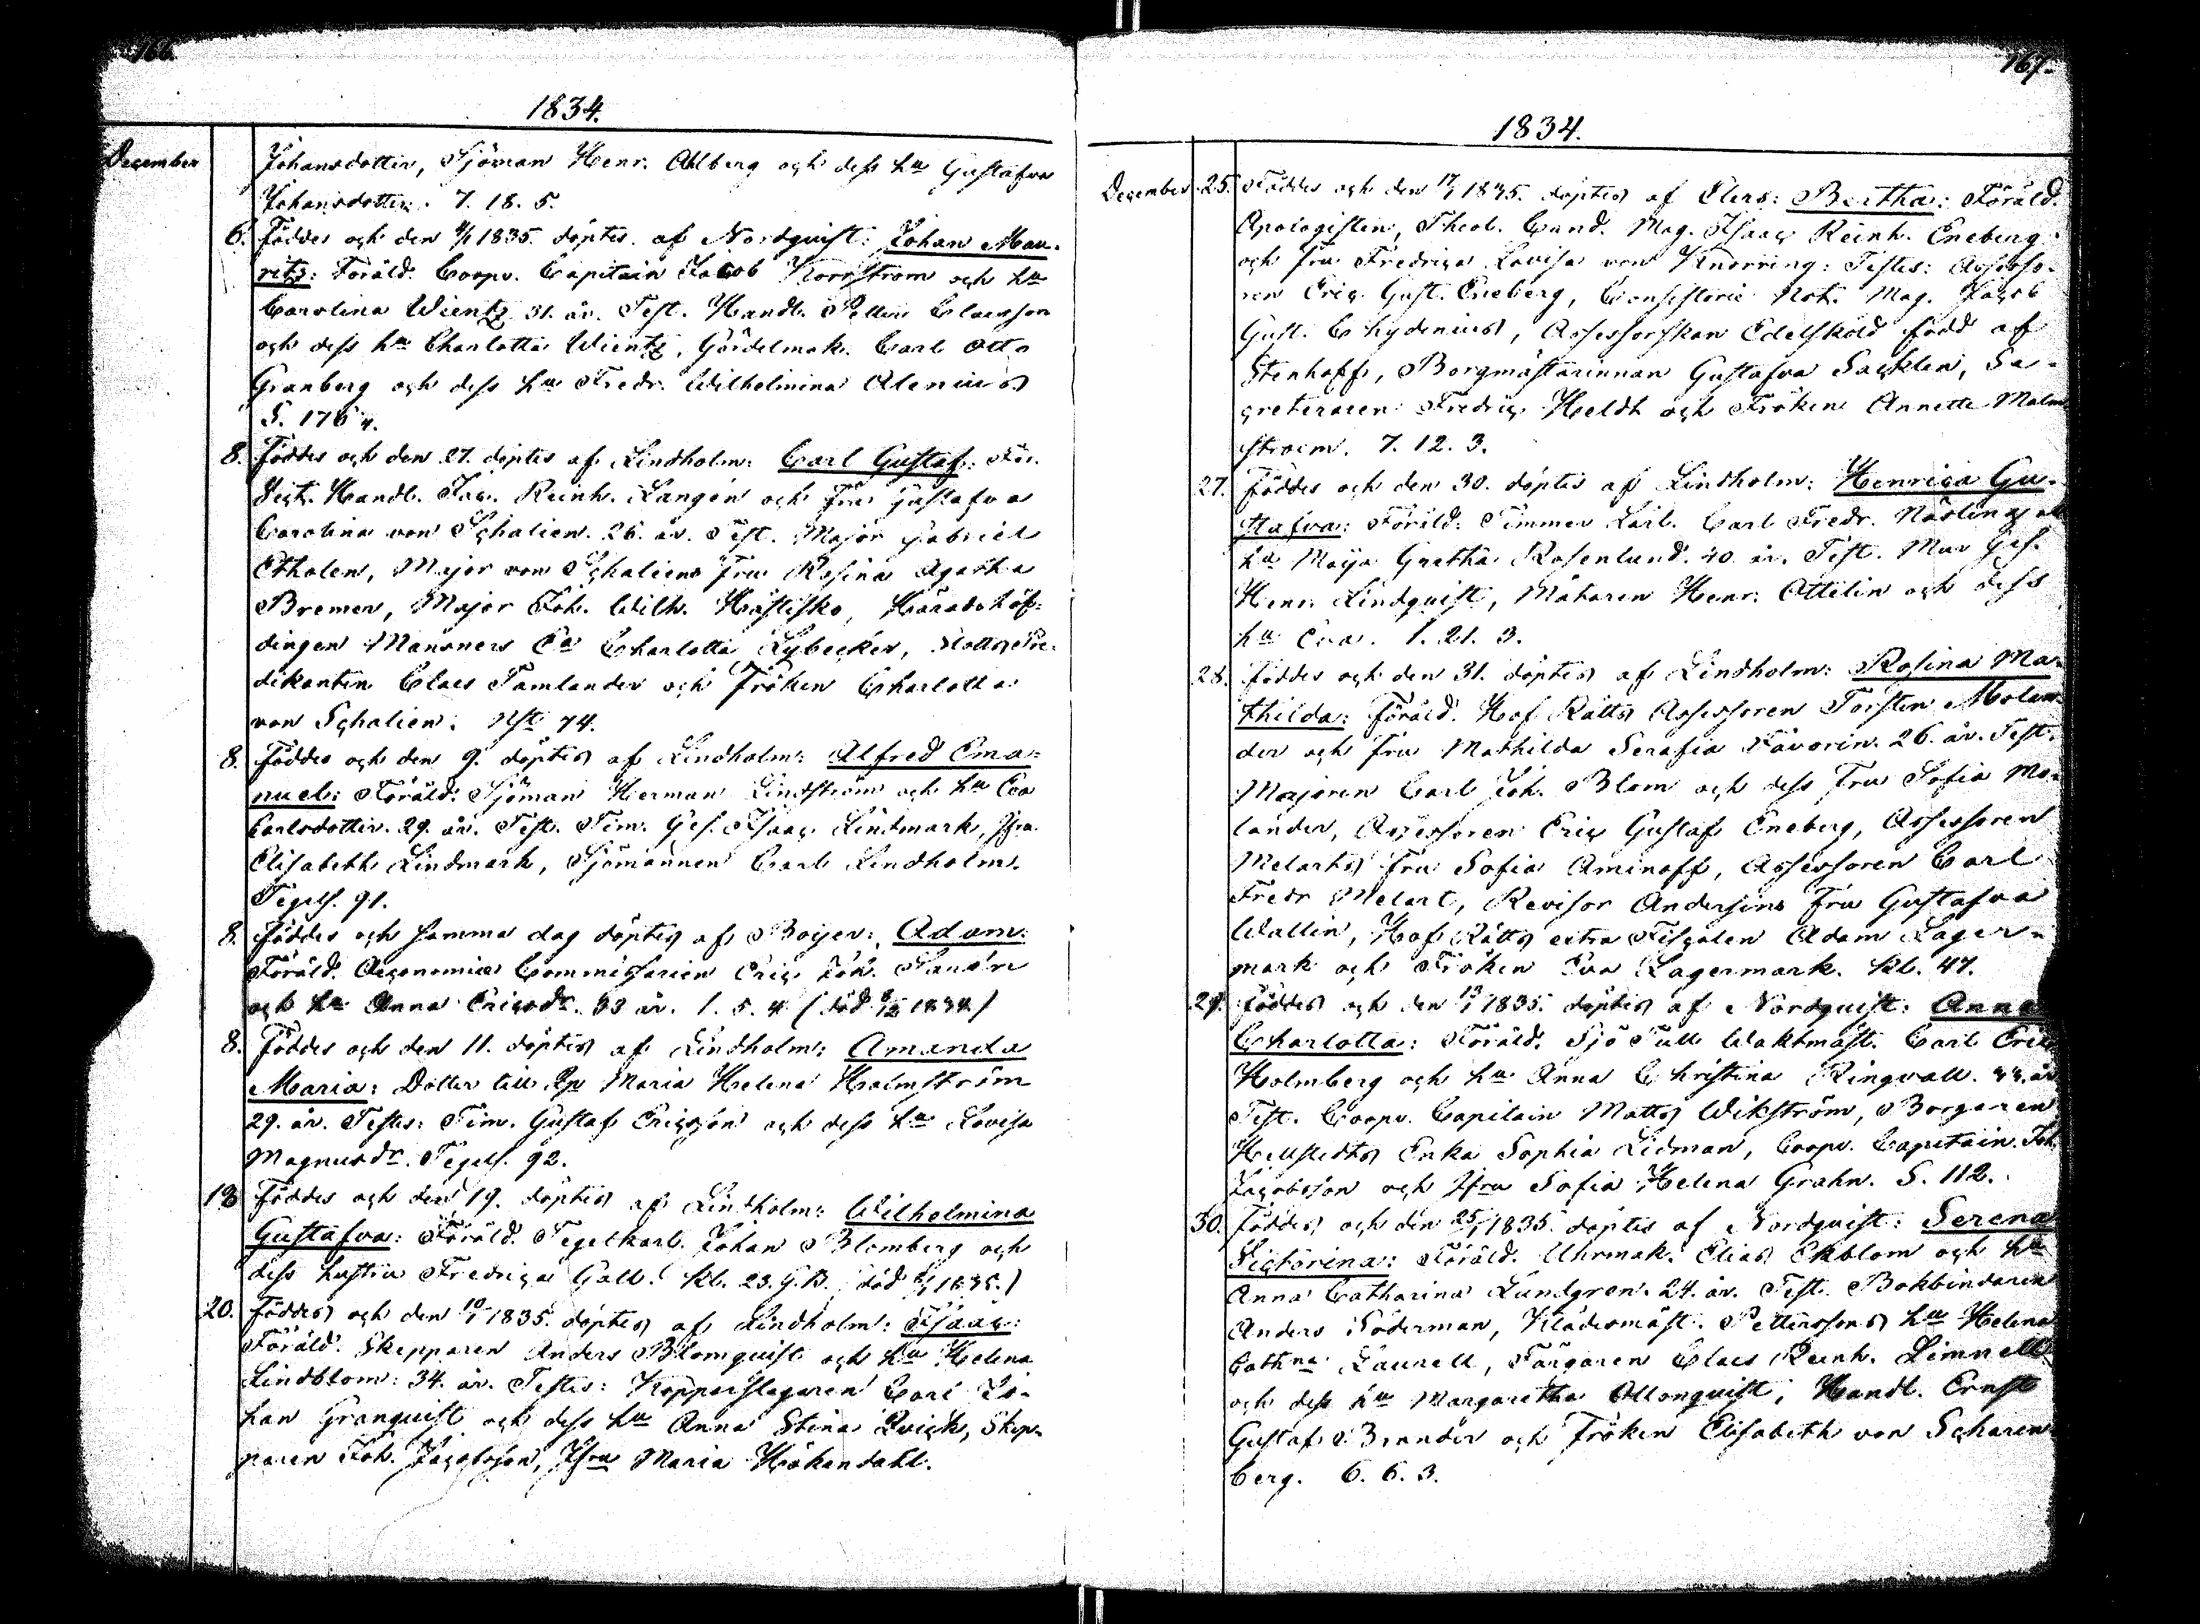 166.
1834.
December
Johansdotter, Sjöman Henr. Ahlberg och dess hu Gustafva
Johansdotter. 7. 18. 5.
6. Föddes och den 4/1 1835. döptes af Nordquist: Johan Mau-
ritz: Föräld. Coopv. Capitain Jacob Norrström och hu
Carolina Wientz 31. år. Test. Handl. Petter Claesson
och dess hu Charlotta Wientz, Gördelmak. Carl Otto
Granberg och dess hu Fredr. Wilhelmina Alenius
S. 176
8. Föddes och den 27. döptes af Lindholm: Carl Gustaf: För.
Vict. Handl. Jac. Reinh. Langén och Fru Gustafva
Carolina von Schalien. 26. år. Test. Major Gabriel
Etholen, Major von Schaliens Fru Rosina Agatha
Bremer, Major Joh. Wilh. Hästisko, Häradshöf-
dingen Mansners Charlotta Lybecker, Slotts Pre-
dikanten Claes Tamlander och Fröken Charlotta
von Schalien. Nst. 74.
8. Föddes och den 9. döptes af Lindholm: Alfred Ema-
nuel: Föräld: Sjöman Herman Lindström och hu Eva
Carlsdotter. 29. år. Test. Tim. Ges. Isaac Lindmark, Jfru
Elisabeth Lindmark, Sjömannen Carl Lindholm.
Tegels. 91.
8. Föddes och samma dag döptes af Boijer: Adam:
Föräld. Oeconomie Commissarien Eric Joh.
och hu Anna Ericsdr. 33 år. 1. 5. 4 (död 8/12 1834)
8. Föddes och den 11. döptes af Lindholm: Amanda
Maria: Dotter till Maria Helena Holmström
29. år. Testes: Tim. Gustaf Ericsson och dess hu Lovisa
Magnusdr. Tegels. 92.
18 Föddes och den 19. döptes af Lindholm: Wilhelmina
Gustafva: Föräld. Tegelkarl. Johan Blomberg och
dess hustru Fredrica Gall. kl. 23. G.B. (död 1835.)
20. Föddes och den 10/1 1835. döptes af Lindholm: Isaac:
Föräld. Skepparen Anders Blomquist och hu Helena
Lindblom: 34. år. Testes: Kopparslagaren Carl Jo-
han Granquist och dess hu Anna Stina Qvick, Skep-
paren Joh. Jacobsson, Jfru Maria Håkendahl.
167.
1834.
December 25. Föddes och den 17/1 1835. döptes af Elers: Bertha: Föräld.
Apologisten, Theol. Cand. Mag. Isaac Reinh. Eneberg
och fru Fredrica Lovisa von Knorring: Testes: Assesso-
ren Eric Gust. Eneberg, Consistorie Not. Mag. Jacob
Gust. Chydenius, Assessorskan Edelsköld född af
Stenhoff, Borgmästarinnan Gustafva Sacklen, Se-
creteraren Fredric Heldt och Fröken Annette Malm
stroem. 7. 12. 3.
27. Föddes och den 30. döptes af Lindholm: Henrica Gu-
stafva: Föräld: Timmer Karl. Carl Fredr. Näsling och
hu Maija Gretha Rosenlund. 40. år. Test. Mur Ges.
Henr. Lindquist, Mätaren Henr. Ottelin och dess
hu Eva. 1. 21. 3.
28. Föddes och den 31. döptes af Lindholm: Rosina Ma-
thilda: Föräld. Hof Rätts Assessoren Torsten Molan-
der och Fru Mathilda Serafia Favorin. 26. år. Test.
Majoren Carl Joh. Blom och dess Fru Sofia Mo-
lander, Assessoren Eric Gustaf Eneberg, Assessoren
Melarts Fru Sofia Aminoff, Assessoren Carl
Fredr Melart, Revisor Andersins Fru Gustafva
Wallin, Hof Rätts extra Fiscalen Adam Lager-
mark och Fröken Eva Lagermark. kl. 47.
29. Föddes och den 13/1 1835. döptes af Nordquist: Anna
Charlotta: Föräld. Sjö Tull Waktmäst. Carl Eric
Holmberg och hu Anna Christina Ringvall. 33. år
Test. Coopv. Capitain Matts Wikström, Borgaren
Hellstedts Enka Sophia Lidman, Coopv. Capitain. Joh.
Jacobsson och Jfru Sofia Helena Grahn. S. 112.
30. Föddes och den 25/1 1835. döptes af Nordquist: Serena
Victorina: Föräld. Uhrmak. Elias Ekblom och hu
Anna Catharina Lundgren. 24. år. Test. Bokbindaren
Anders Söderman, Klädesmäst. Petterssons hu Helena
Cathna Laurell, Färgaren Claes Reinh. Limnell
och dess hu Margaretha Allonquist, Handl. Ernst
Gustaf Brander och Fröken Elisabeth von Scharen
berg. 6. 6. 3.